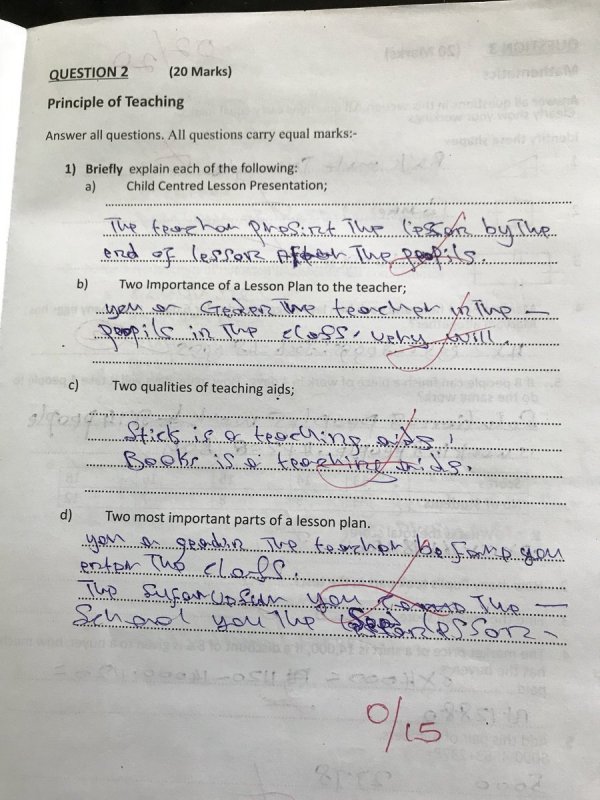 QUESTION 2 (20 Marks)
Principle of Teaching
Answer all questions. All questions carry equal marks:-
1) Briefly explain each of the following:
a) Child Centred Lesson Presentation;
The teachar presint The lesson by The
end of lesson After The popils.
b) Two Importance of a Lesson Plan to the teacher;
you ar Geden The teacher in The —
popils in The class. very will.
c) Two qualities of teaching aids;
Stick is a teaching aids,
Books is a teaching aids.
d) Two most important parts of a lesson plan.
you ar geedin The teacher be fore you
enter The class.
The you The —
School you The lesson –
0/15